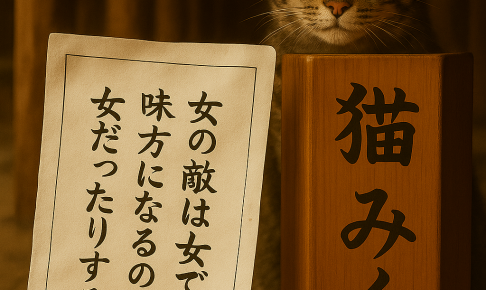 女の敵は女で
味方になるの
女だったりす
猫み